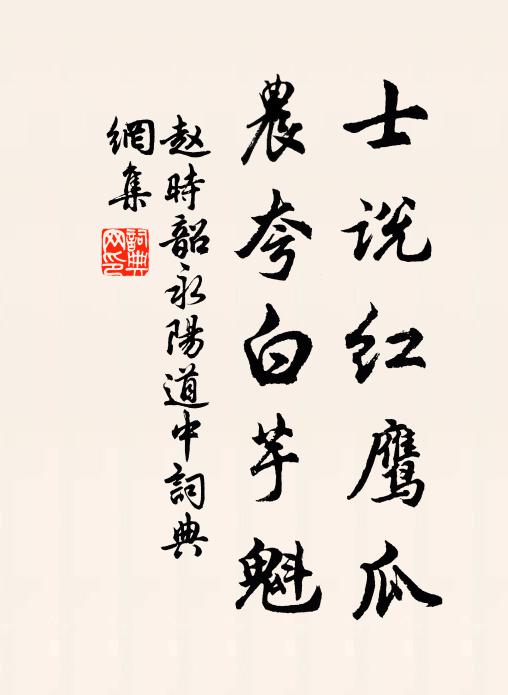 士说红鹰瓜
農夸白芋魁
赵時韶永陽道中詞典
網集
詞典
网印